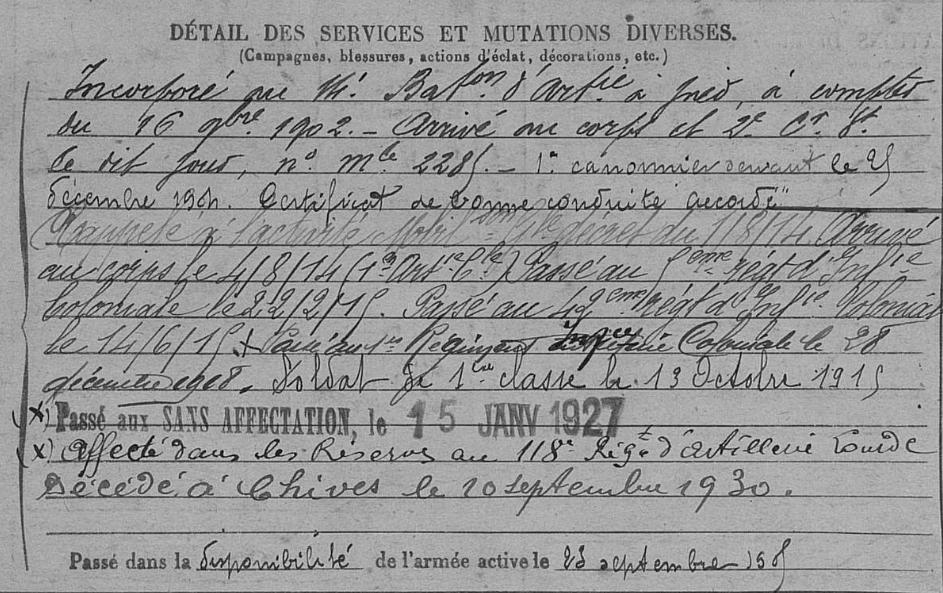 DÉTAIL DES SERVICES ET MUTATIONS DIVERSES.
(Campagnes, blessures, actions d'éclat, décorations, etc.)
Incorporé au Bat^on d'Art^ie à pied, à compter
du 16 9bre 1902. – Arrivé au corps et 2e
le dit jour, n° M^le 2285. – 1er canonnier servant le 25
décembre 1904. Certificat de bonne conduite accordé
Rappelé à l'activité décret du 1/8/14 Arrivé
au corps le 4/8/14 Passé au 5eme régt d'Inf^ie
Coloniale le 22/2/15. Passé au 42eme régt d'Inf^ie Colonial
le 14/6/15 x Passé au 1er Régiment Coloniale le 28
décembre 1918. Soldat de 1ère classe le 13 Octobre 1915
x) Passé aux SANS AFFECTATION, le 15 JANV 1927
x) Affecté dans les Réserves au 118e Rég^t d'artillerie Lourde
Décédé à Chives le 10 septembre 1930.
Passé dans la disponibilité de l'armée active le 23 septembre